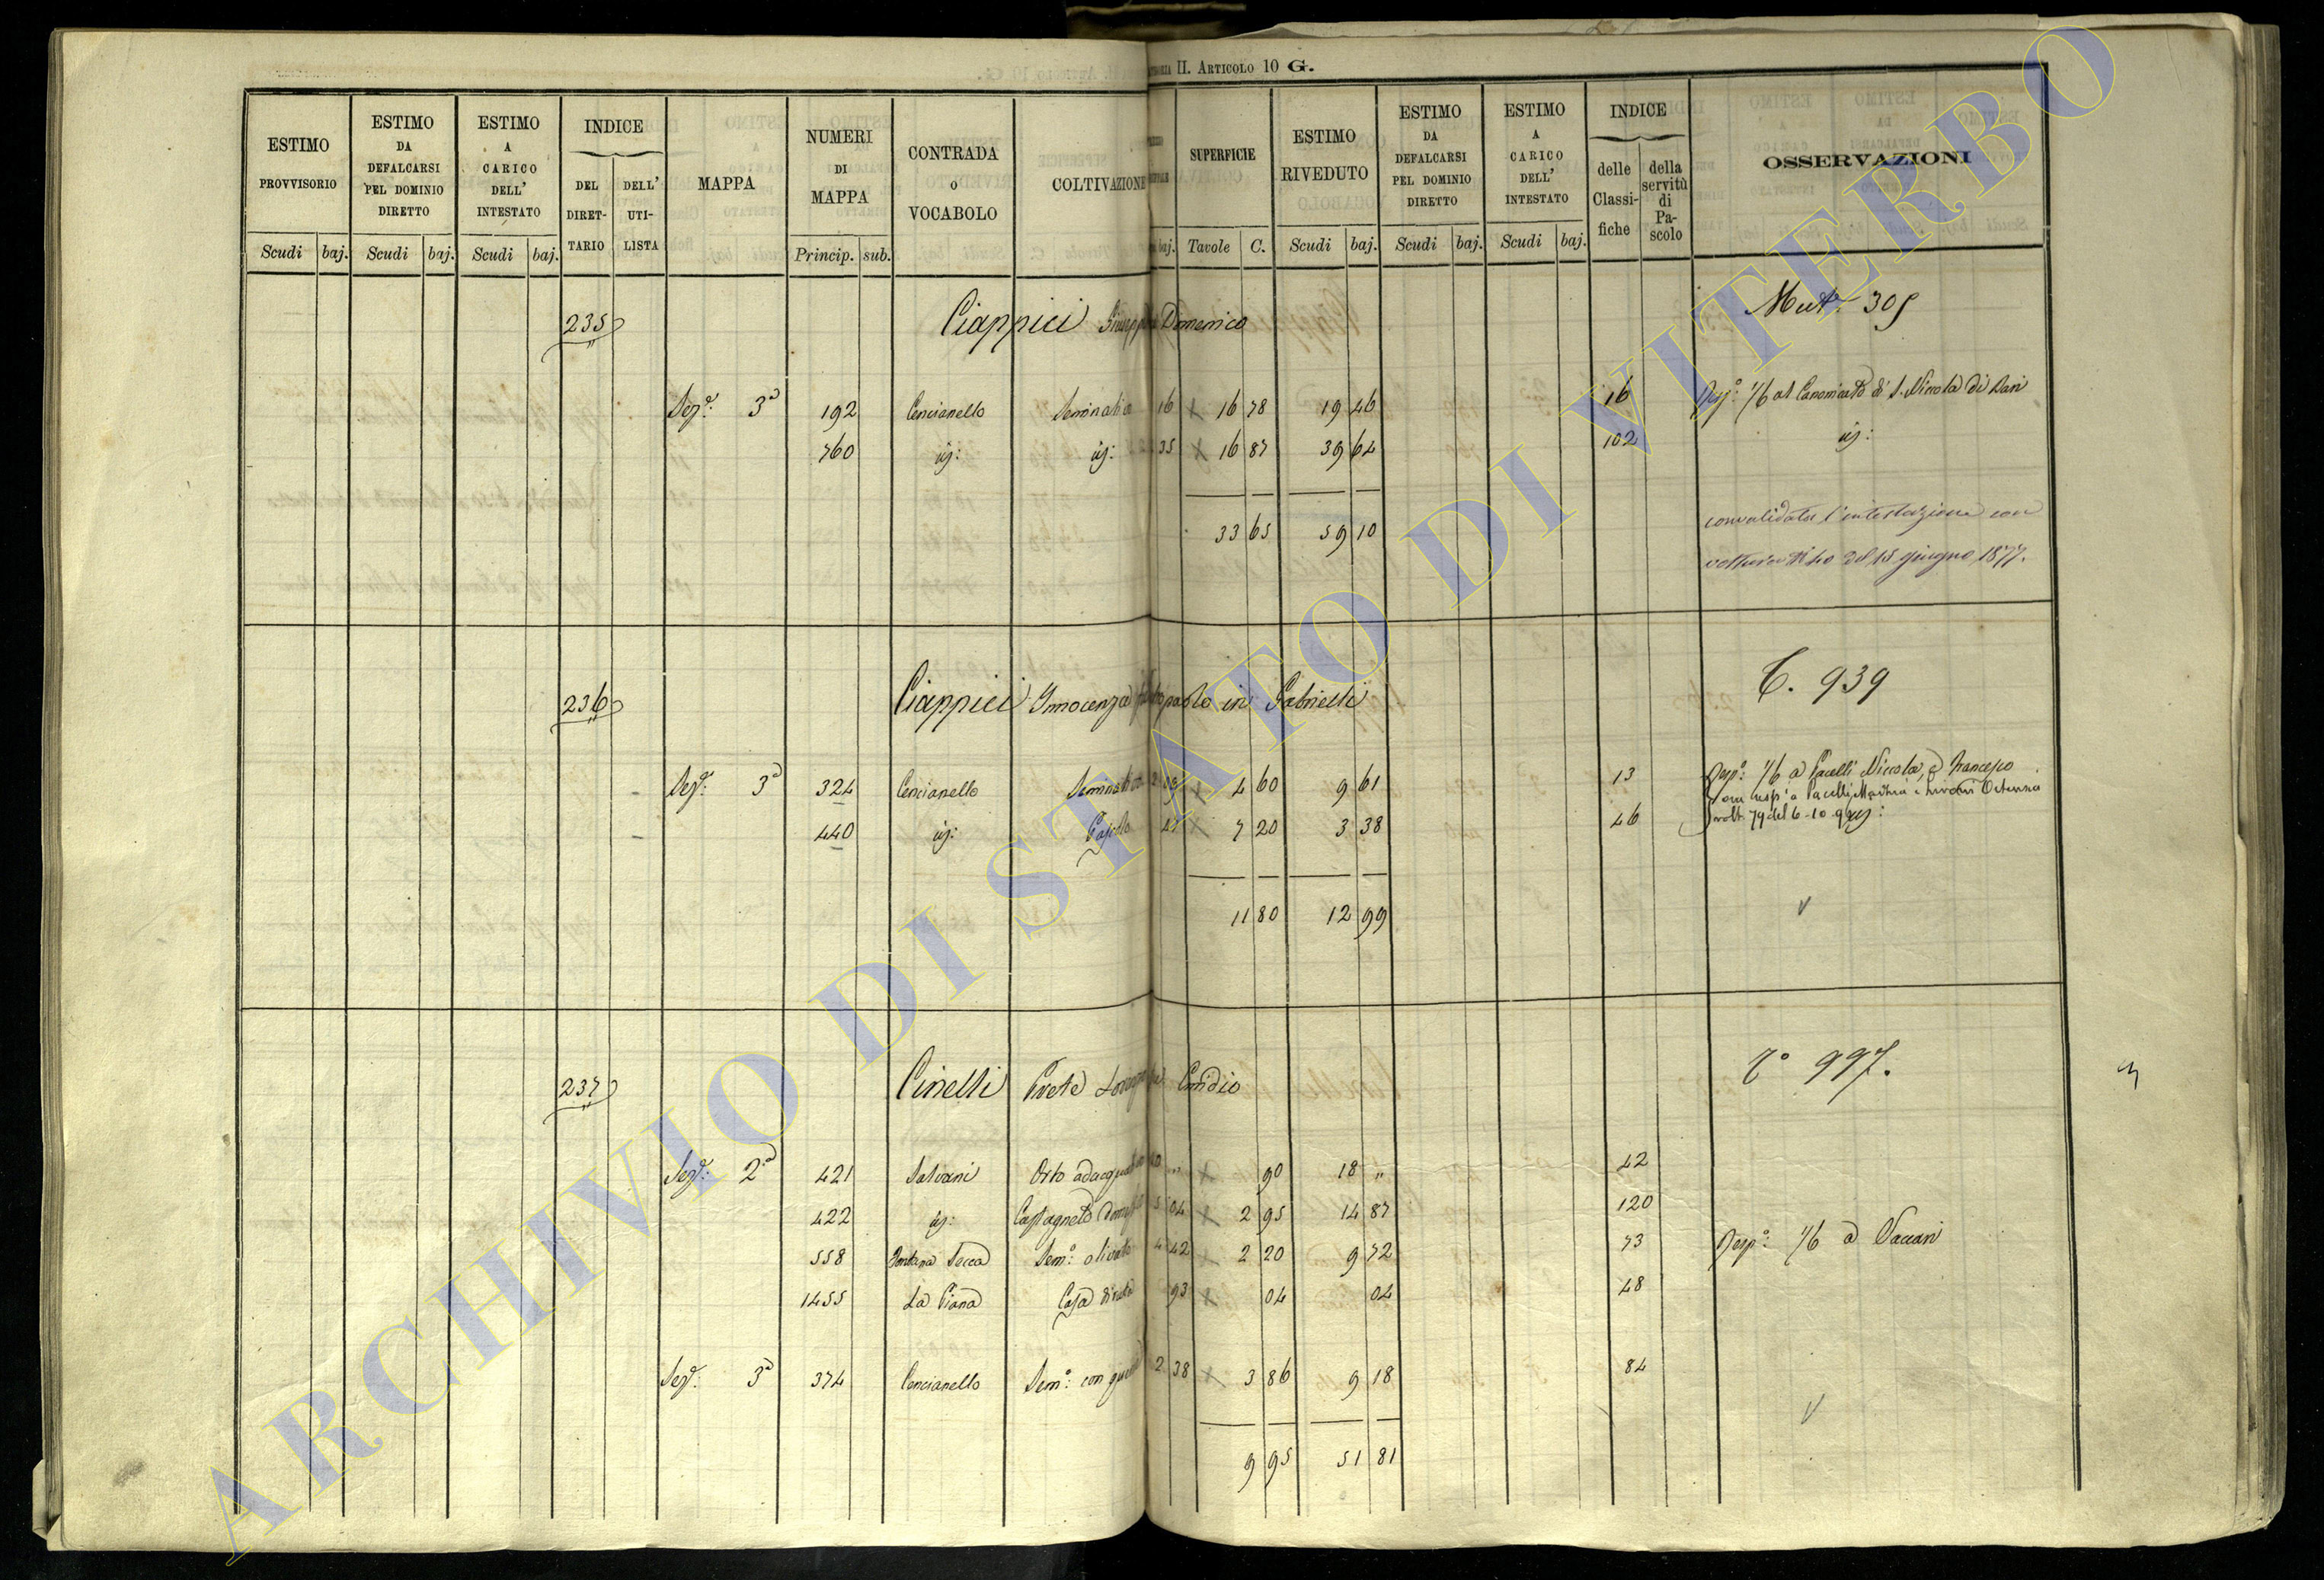 II. Articolo 10 G.
ESTIMO PROVVISORIO
ESTIMO DA DEFALCARSI PEL DOMINIO DIRETTO
ESTIMO A CARICO DELL' INTESTATO
INDICE
DEL DIRETTARIO
DELL' UTILISTA
MAPPA
NUMERI DI MAPPA
CONTRADA O VOCABOLO
COLTIVAZIONE
SUPERFICIE
ESTIMO RIVEDUTO
ESTIMO DA DEFALCARSI PEL DOMINIO DIRETTO
ESTIMO A CARICO DELL' INTESTATO
INDICE
delle Classifiche
della servitù di Pascolo
OSSERVAZIONI
Scudi baj. Scudi baj. Scudi baj. Princip. sub. baj. Tavole C. Scudi baj. Scudi baj. Scudi baj.
235 Ciappici Domenico Mut. 305
Sez.e 3a 192 Cencianello Seminativo 16 x 16 78 19 46 16 1/6 al Canonicato di S. Niccola di Bari
760 id: id: 35 x 16 87 39 64 102 id:
33 65 59 10
convalidata l'intestazione con
del 15 giugno 1877.
236 Ciappici Innocenza in Gabrielli T. 939
Sez.e 3a 324 Cencianello Seminativo x 4 60 9 61 13 Resp.o 1/6 a Pacelli Niccola, e Francesco
440 id: Pascolo x 7 20 3 38 46
11 80 12 99
237 Cinelli Prete Emidio T.o 997.
Sez.e 2a 421 Salvani Orto adacquativo x 90 18 " 42
422 id: Castagneto 5 04 x 2 95 14 87 120
558 Fontana Secca Sem.o olivato 4 42 x 2 20 9 72 73 Resp.o 1/6 a Vaccari
1455 La Piana Casa 93 x 04 04 48
Sez.e 3a 374 Cencianello Sem.o con 2 38 x 3 86 9 18 84
9 95 51 81
ARCHIVIO DI STATO DI VITERBO